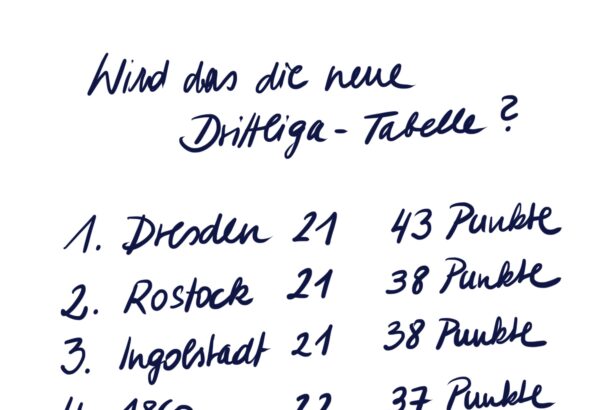 Wird das die neue
Drittliga - Tabelle?
1. Dresden 21 43 Punkte
2. Rostock 21 38 Punkte
3. Ingolstadt 21 38 Punkte
4. 1860 22 37 Punkte